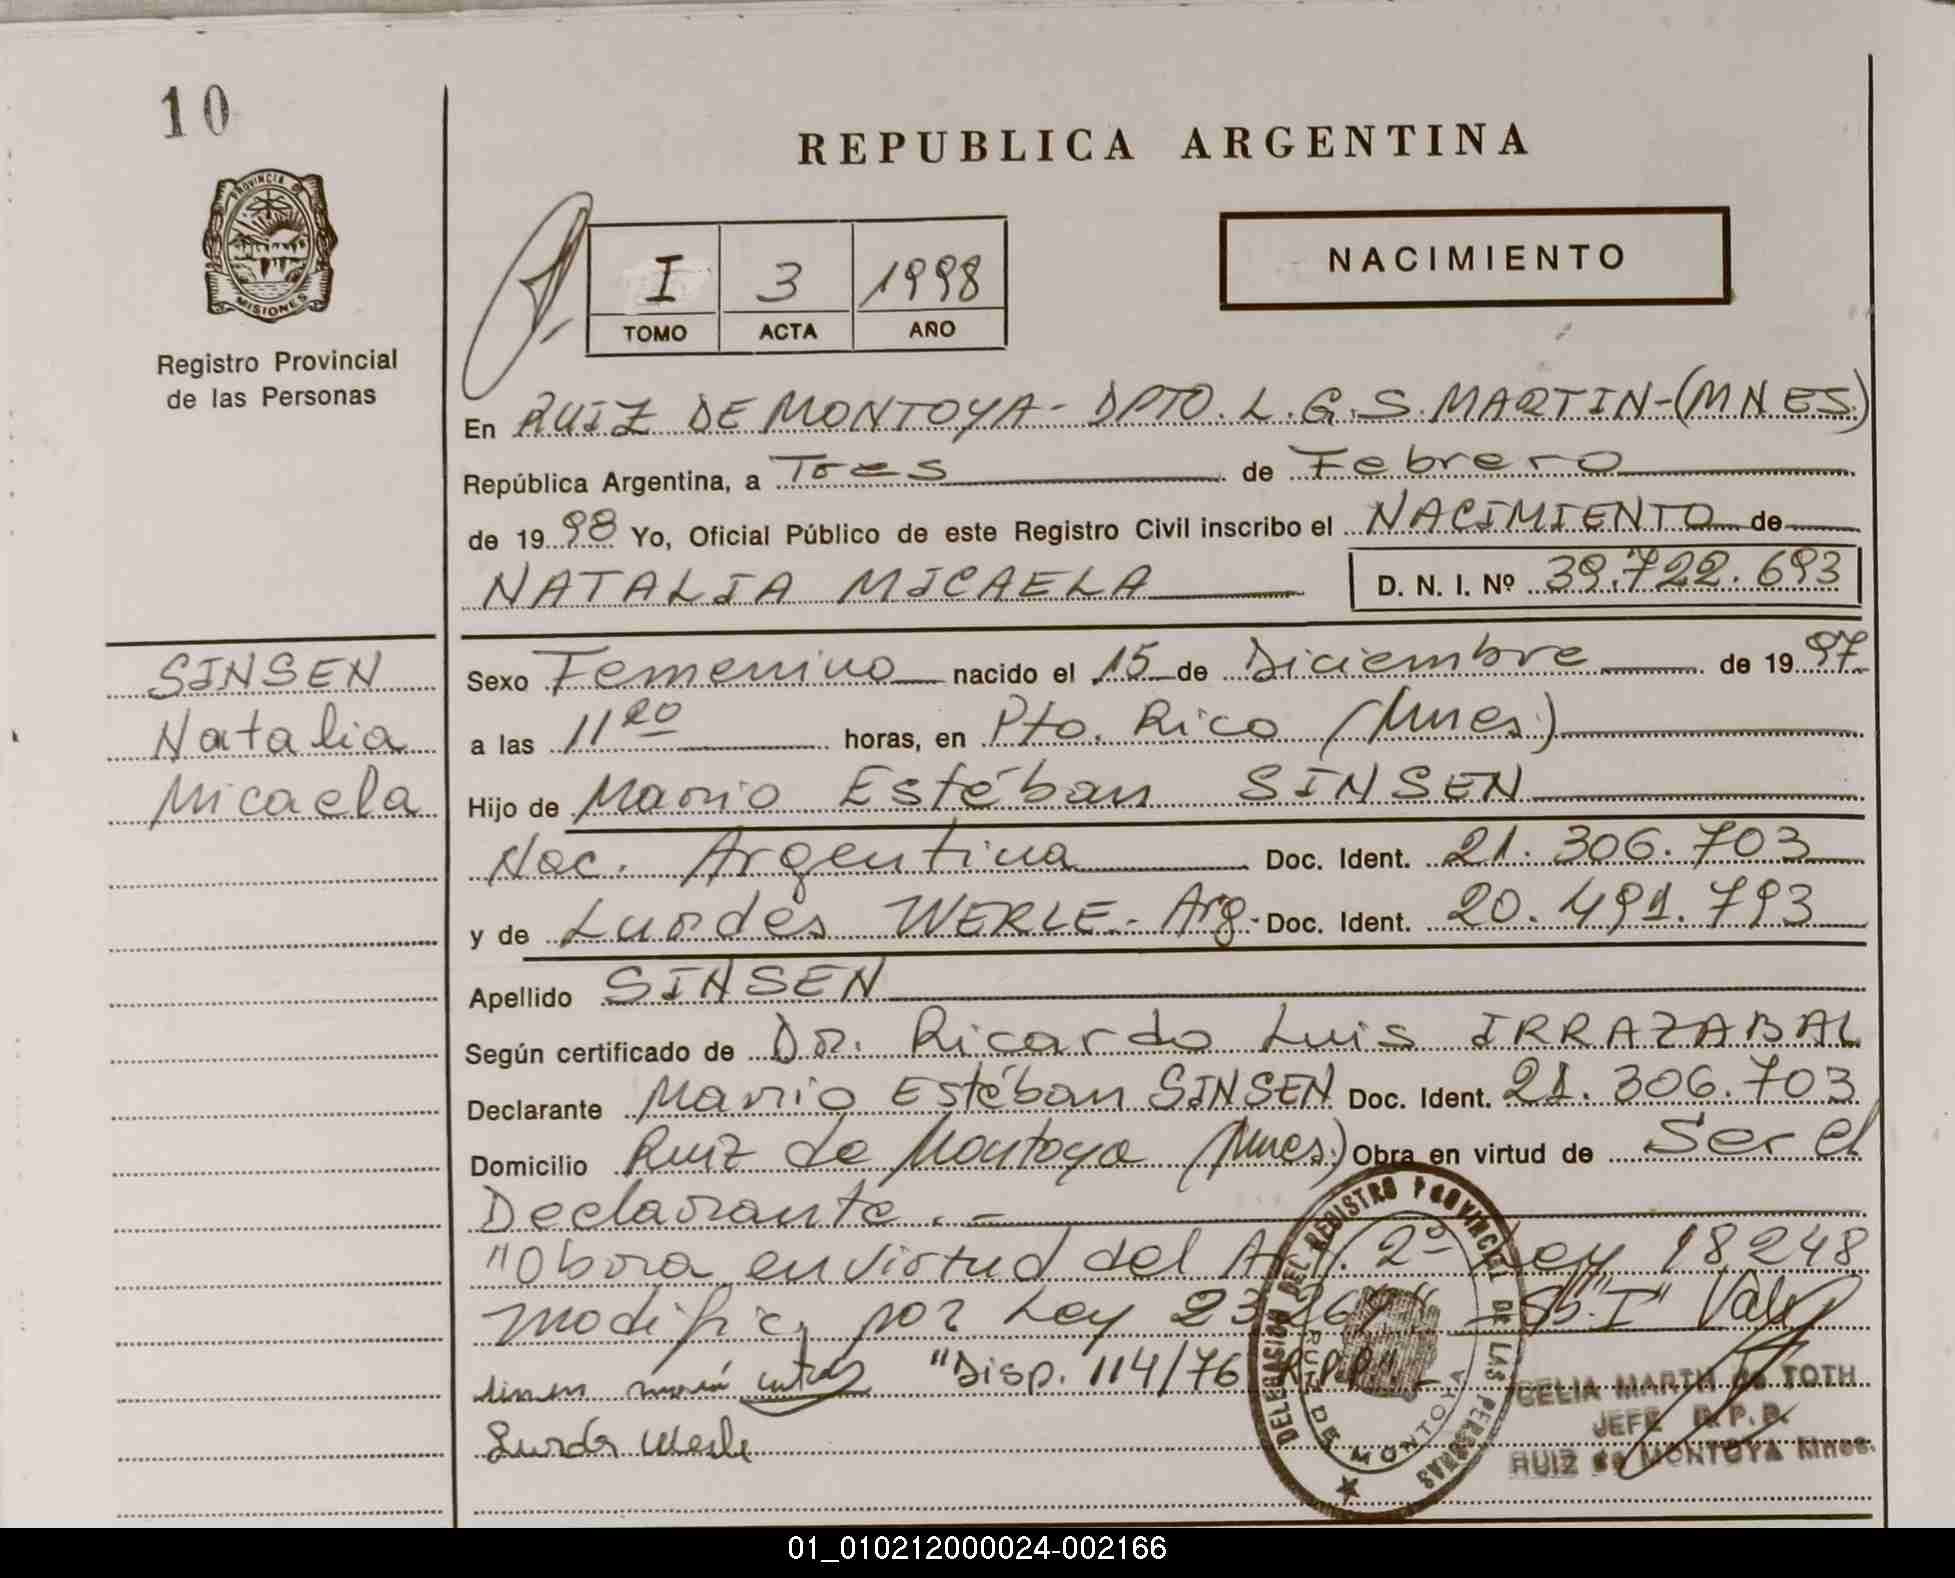 10
REPUBLICA ARGENTINA
PROVINCIA DE
MISIONES
Registro Provincial
de las Personas
I 3 1998
TOMO ACTA AÑO
NACIMIENTO
En RUIZ DE MONTOYA - DPTO. L.G.S. MARTIN-(MNES.)
República Argentina, a Tres de Febrero
de 1998 Yo, Oficial Público de este Registro Civil inscribo el NACIMIENTO de
NATALIA MICAELA D. N. I. Nº 39.722.693
SINSEN
Natalia
Micaela
Sexo Femenino nacido el 15 de Diciembre de 1997
a las 11 20 horas, en Pto. Rico (Mnes.)
Hijo de Mario Estéban SINSEN
Nac. Argentina Doc. Ident. 21.306.703
y de Lurdes WERLE.- Arg. Doc. Ident. 20.491.793
Apellido SINSEN
Según certificado de Dr. Ricardo Luis IRRAZABAL
Declarante Mario Estéban SINSEN Doc. Ident. 21.306.703
Domicilio Ruiz de Montoya (Mnes.) Obra en virtud de Ser el
Declarante.-
"Obra en virtud del Art. 2º Ley 18.248
modific. por Ley 23.264" "I" Vale
"Disp. 114/76 R.P.P."-
Lurdes Werle
DELEGACION DEL REGISTRO PROVINCIAL DE LAS PERSONAS
RUIZ DE MONTOYA
CELIA MARTH de TOTH
JEFE R.P.P.
RUIZ de MONTOYA Mnes.
01_010212000024-002166